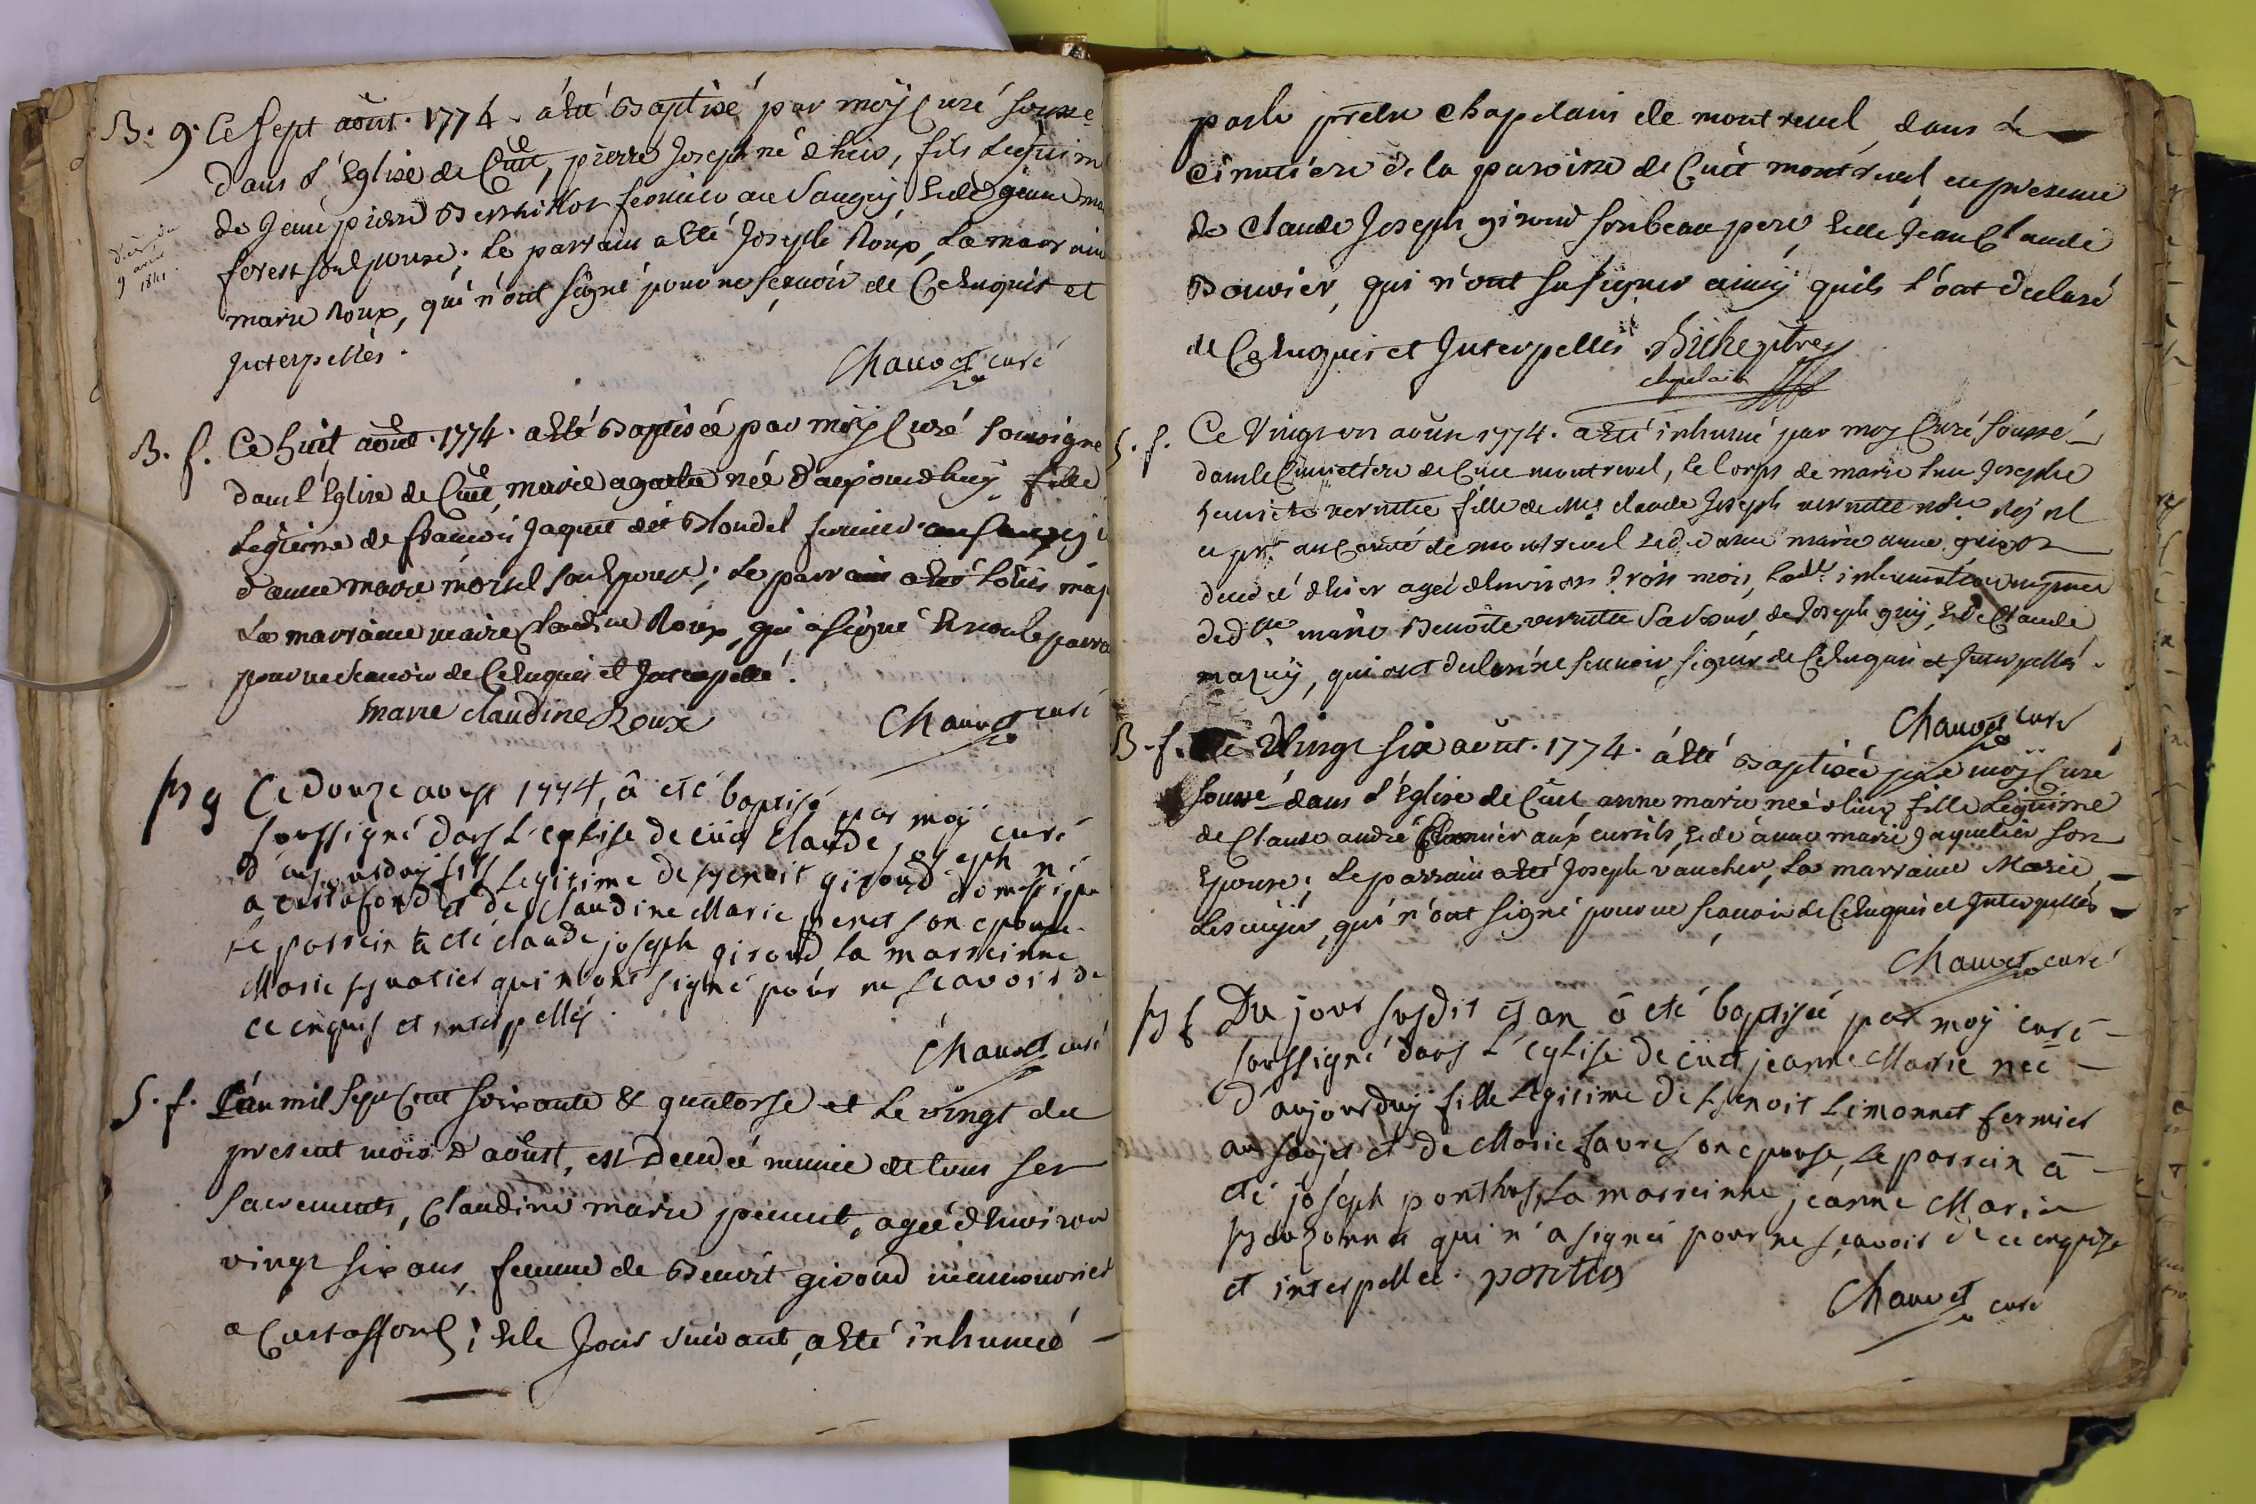 B. g. Ce sept août. 1774. a été Baptisé par moy Curé sousse
dans l'Eglise de Cuet, pierre Joseph né d'hier, fils Legitim
de Jean pierre fermier au Saugey Et de jeanne ma
forest son Epouse. Le parrain a Eté Joseph Roux, La marrain
marie Roux, qui n'ont signé pour ne sçavoir de Ce Enquis et
Interpellés.
9 avril
1841.
Chauvet curé
B. f. Ce huit août. 1774. a Eté Baptisée par moy Curé soussigné
dans l'Eglise de Cuet, marie agathe née d'aujourdhuy fille
Legitime de francois Jaquet dit Blondel fermier au saugey
d'anne marie morel son Epouse; Le parrain a Eté Louis
La marraine marie Claudine Roux, qui a signé Et non le parra
pour ne sçavoir de Ce Enquis et Interpellé.
marie claudine Roux
Chauvet curé
B g Ce douze aoust 1774, â eté baptisé par moy curé
soussigné dans L'eglise de cüet Claude joseph né
d'aujourduy fils Legitime de Benoit giroud domestique
a curtafond et de Claudine Marie penet son epouse
Le parrein a eté claude joseph giroud La marreinne
Marie qui n'ont signé pour ne scavoir de
ce enquis et interpellés.
Chauvet curé
S. f. L'an mil sept Cent soixante & quatorse et Le vingt du
present mois d'aoust, est decedée munie de tous ses
sacrements, Claudine marie penet, agée d'Environ
vingt six ans, femme de Benoit giroud manouvrier
a Curtaffond; Et le Jour suivant, a Eté inhumée
par le prêtre Chapelain de montrevel dans Le
Cimetière de la paroisse de Cuet montrevel en presence
de Claude Joseph giroud son beau pere, Et de Jean Claude
Bouvier, qui n'ont su signer ainsy quils l'ont declaré
de Ce Enquis et Interpellés. ptre
chapelain
S. f. Ce Vingt un août 1774. a Eté inhumé par moy Curé soussé
dans le Cimetière de Cuet montrevel, Le Corps de marie Josephe
vernette fille de Mre claude Joseph vernette notre royal
et pr. au Comté de montrevel Et de dame marie anne guyot
decedé d'hier agée d'Environ trois mois, Ladte inhumation en presence
de dlle marie Benoite vernette sa sœur, de Joseph guy, Et de Claude
mazuy, qui ont declaré ne sçavoir signer de Ce Enquis et Interpellés.
Chauvet curé
B. f. Ce Vingt six août. 1774. a Eté Baptisée par moy Curé
soussé dans l'Eglise de Cuet anne marie née d'hier fille Legitime
de Claude andré aux curtils, Et de anne marie Jaquetier son
Epouse; Le parrain a Eté Joseph vaucher, La marraine Marie
Lescuyer, qui n'ont signé pour ne sçavoir de Ce Enquis et Interpellés
Chauvet curé
B f Du jour susdit et an â eté baptisée par moy curé
soussigné dans L'eglise de cüet jeanne Marie neé
d'aujourduy fille Legitime de Benoit Limonnet fermier
au saujet et de Marie favre son epouse, Le parrein â
eté joseph ponthus, La marreinne jeanne Marie
qui n'a signée pour ne sçavoir de ce enquize
et interpellée. pontus
Chauvet curé